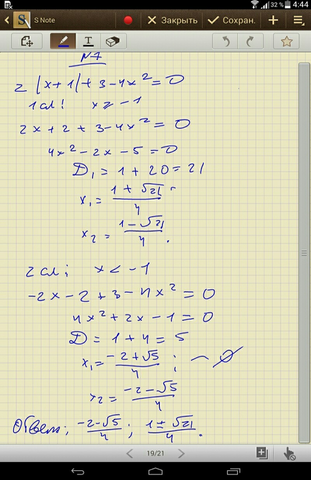 32 % 4:44
S Note
Закрыть
Сохран.
N7
2|x+1|+3-4x²=0
1 сл: x ≥ -1
2x+2+3-4x²=0
4x²-2x-5=0
D₁=1+20=21
x₁=(1+√21)/4
x₂=(1-√21)/4.
2 сл: x < -1
-2x-2+3-4x²=0
4x²+2x-1=0
D=1+4=5
x₁=(-2+√5)/4; ~ ∅
x₂=(-2-√5)/4
Ответ: (-2-√5)/4; (1±√21)/4.
19/21